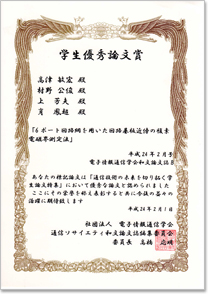 学生優秀論文賞
高津 敏宏 殿
村野 公俊 殿
上 芳夫 殿
肖 鳳超 殿
「6ポート回路網を用いた回路基板近傍の複素
電磁界測定法」
平成24年2月号
電子情報通信学会和文論文誌B
あなたの標記論文は「通信技術の未来を切り拓く学
生論文特集」において優秀な論文と認められました
ここにその栄誉を称え表彰すると共に今後の益々の
活躍に期待致します
平成24年2月1日
社団法人 電子情報通信学会
通信ソサイエティ和文論文誌編集委員会
委員長 高橋